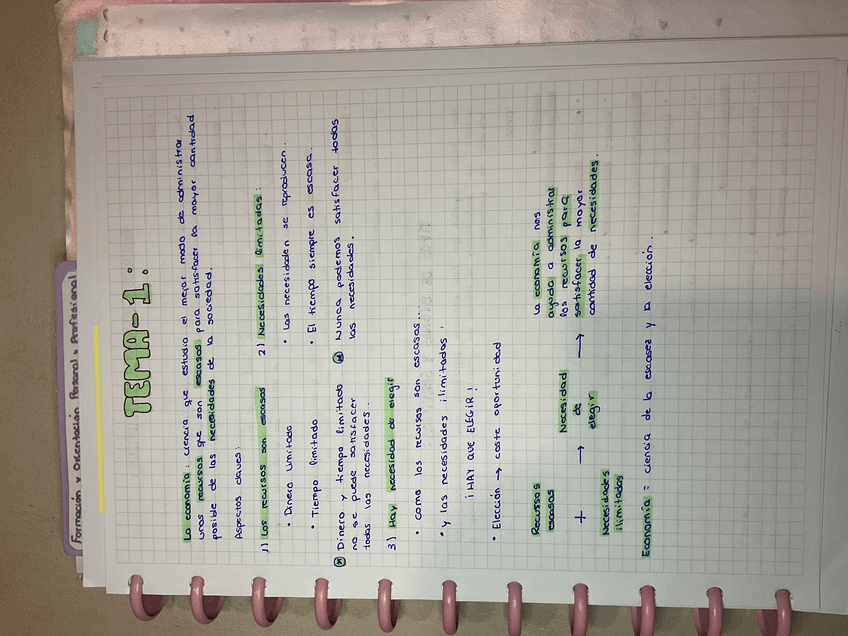 Formación y Orientación Personal y Profesional
TEMA-1:
La economía: ciencia que estudia el mejor modo de administrar
unos recursos que son escasos para satisfacer la mayor cantidad
posible de las necesidades de la sociedad.
Aspectos claves:
1) Los recursos son escasos
• Dinero limitado
• Tiempo limitado
Dinero y tiempo limitado
no se puede satisfacer
todas las necesidades.
2) Necesidades limitadas:
• Las necesidaden se reproducen.
• El tiempo siempre es escaso.
Nunca podemos satisfacer todas
las necesidades.
3) Hay necesidad de elegir
• como los recursos son escasos...
• y las necesidades ilimitadas
¡HAY QUE ELEGIR!
• Elección → coste oportunidad
Recursos
escasos
+
Necesidades
ilimitadas
→
Necesidad
de
elegir
→
La economía nos
ayuda a administrar
los recursos para
satisfacer la mayor
cantidad de necesidades.
Economía = ciencia de la escasez y la elección.